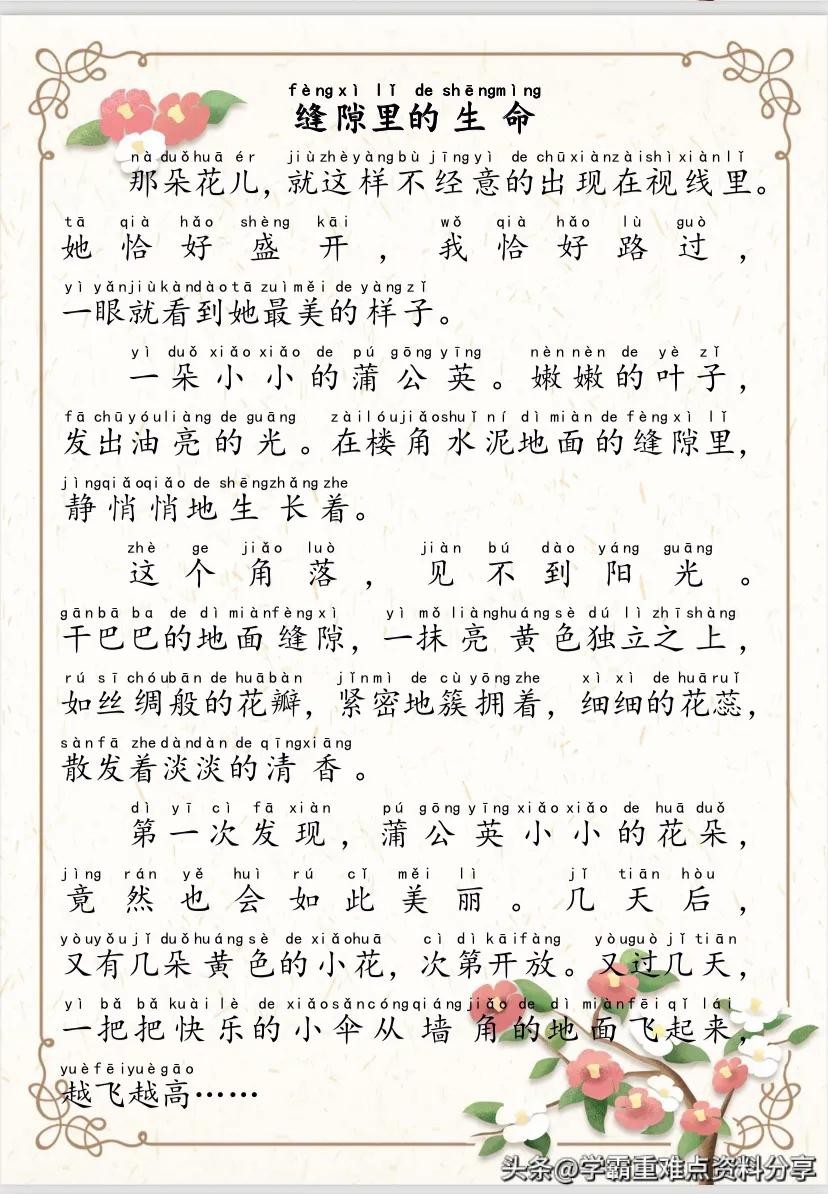 fèng xì lǐ de shēng mìng
缝隙里的生命
nà duǒ huā ér jiù zhè yàng bù jīng yì de chū xiàn zài shì xiàn lǐ
那朵花儿，就这样不经意的出现在视线里。
tā qià hǎo shèng kāi wǒ qià hǎo lù guò
她恰好盛开，我恰好路过，
yì yǎn jiù kàn dào tā zuì měi de yàng zǐ
一眼就看到她最美的样子。
yì duǒ xiǎo xiǎo de pú gōng yīng nèn nèn de yè zǐ
一朵小小的蒲公英。嫩嫩的叶子，
fā chū yóu liàng de guāng zài lóu jiǎo shuǐ ní dì miàn de fèng xì lǐ
发出油亮的光。在楼角水泥地面的缝隙里，
jìng qiǎo qiǎo de shēng zhǎng zhe
静悄悄地生长着。
zhè ge jiǎo luò jiàn bú dào yáng guāng
这个角落，见不到阳光。
gān bā ba de dì miàn fèng xì yì mǒ liàng huáng sè dú lì zhī shàng
干巴巴的地面缝隙，一抹亮黄色独立之上，
rú sī chóu bān de huā bàn jǐn mì de cù yōng zhe xì xì de huā ruǐ
如丝绸般的花瓣，紧密地簇拥着，细细的花蕊，
sàn fā zhe dàn dàn de qīng xiāng
散发着淡淡的清香。
dì yī cì fā xiàn pú gōng yīng xiǎo xiǎo de huā duǒ
第一次发现，蒲公英小小的花朵，
jìng rán yě huì rú cǐ měi lì jǐ tiān hòu
竟然也会如此美丽。几天后，
yòu yǒu jǐ duǒ huáng sè de xiǎo huā cì dì kāi fàng yòu guò jǐ tiān
又有几朵黄色的小花，次第开放。又过几天，
yì bǎ bǎ kuài lè de xiǎo sǎn cóng qiáng jiǎo de dì miàn fēi qǐ lái
一把把快乐的小伞从墙角的地面飞起来，
yuè fēi yuè gāo
越飞越高……
头条@学霸重难点资料分享